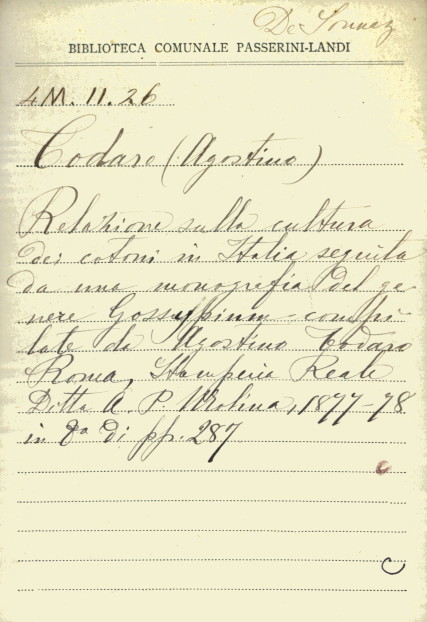 De Sonnaz
BIBLIOTECA COMUNALE PASSERINI-LANDI
4M. II. 26
Todaro (Agostino)
Relazione sulla cultura
dei cotoni in Italia seguita
da una monografia del ge
nere Gossypium - compi-
late da Agostino Todaro
Roma, Stamperia Reale
Ditta A P. Molina, 1877-78
in 8° di pp. 287
C
C